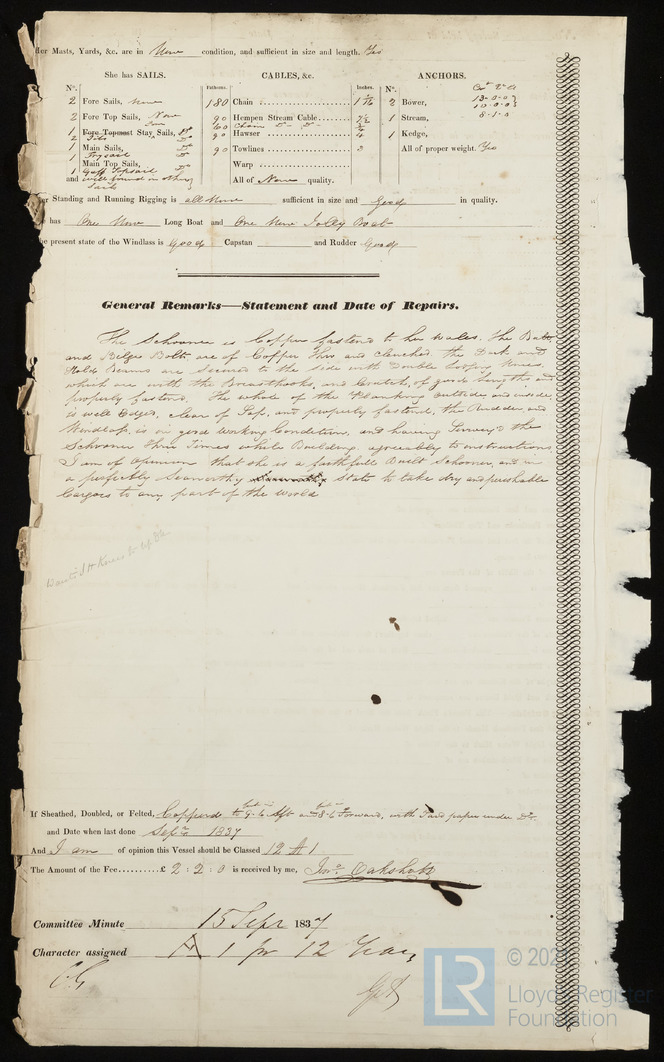 Her Masts, Yards, &c. are in New condition, and sufficient in size and length. Yes
She has SAILS. CABLES, &c. ANCHORS.
No. Fathoms. Inches. No. Ct Qr
2 Fore Sails, New 180 Chain 1 1/16 2 Bower, 13.0.0
10.0.0
2 Fore Top Sails, New 90 Hempen Stream Cable 7½ 1 Stream, 3.1.0
60 Chain Do Do
1 Fore Topmast Stay Sails, Do 90 Hawser 4 1 Kedge,
2 Jibs Do
1 Main Sails, Do 90 Towlines 3 All of proper weight. Yes
1 Trysail Do
Main Top Sails, Warp
1 Gaff Topsail Do
and well found in other All of New quality.
Sails
Her Standing and Running Rigging is all New sufficient in size and Good in quality.
She has One New Long Boat and One New Jolly Boat
The present state of the Windlass is Good Capstan and Rudder Good
General Remarks—Statement and Date of Repairs.
The Schooner is Copper fastened to her Wales, The Butts
and Bilge Bolts are of Copper thro and Clenched, the Deck and
Hold Beams are Secured to the side with Double Knees,
which are with the Breasthooks, and Crutch, of good lengths and
properly fastend. The whole of the Planking outside and inside
is well Edged, clear of Sap, and properly fastend, the Rudder and
Windlass, is in good working Condition, and having Survey'd the
Schooner three times while Building, agreeably to instructions
I am of opinion that she is a faithfull Built Schooner, and in
a perfectly Seaworthy State to take dry and perishable
Cargoes to any part of the World
If Sheathed, Doubled, or Felted, Copperd to 9.6 Aft and 8.6 Forward, with Tard paper under Do
and Date when last done Septr 1837
And I am of opinion this Vessel should be Classed 12 A 1
The Amount of the Fee £ 2 : 2 : 0 is received by me, Jno. Oakshott
Committee Minute 15 Sepr 1837
Character assigned A 1 for 12 Years
© 202
LR
Lloyd's Register
Foundation